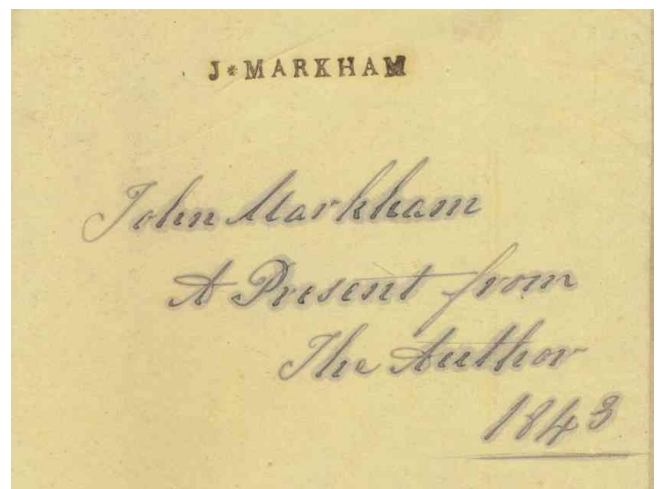 J*MARKHAM
John Markham
A Present from
The Author
1843